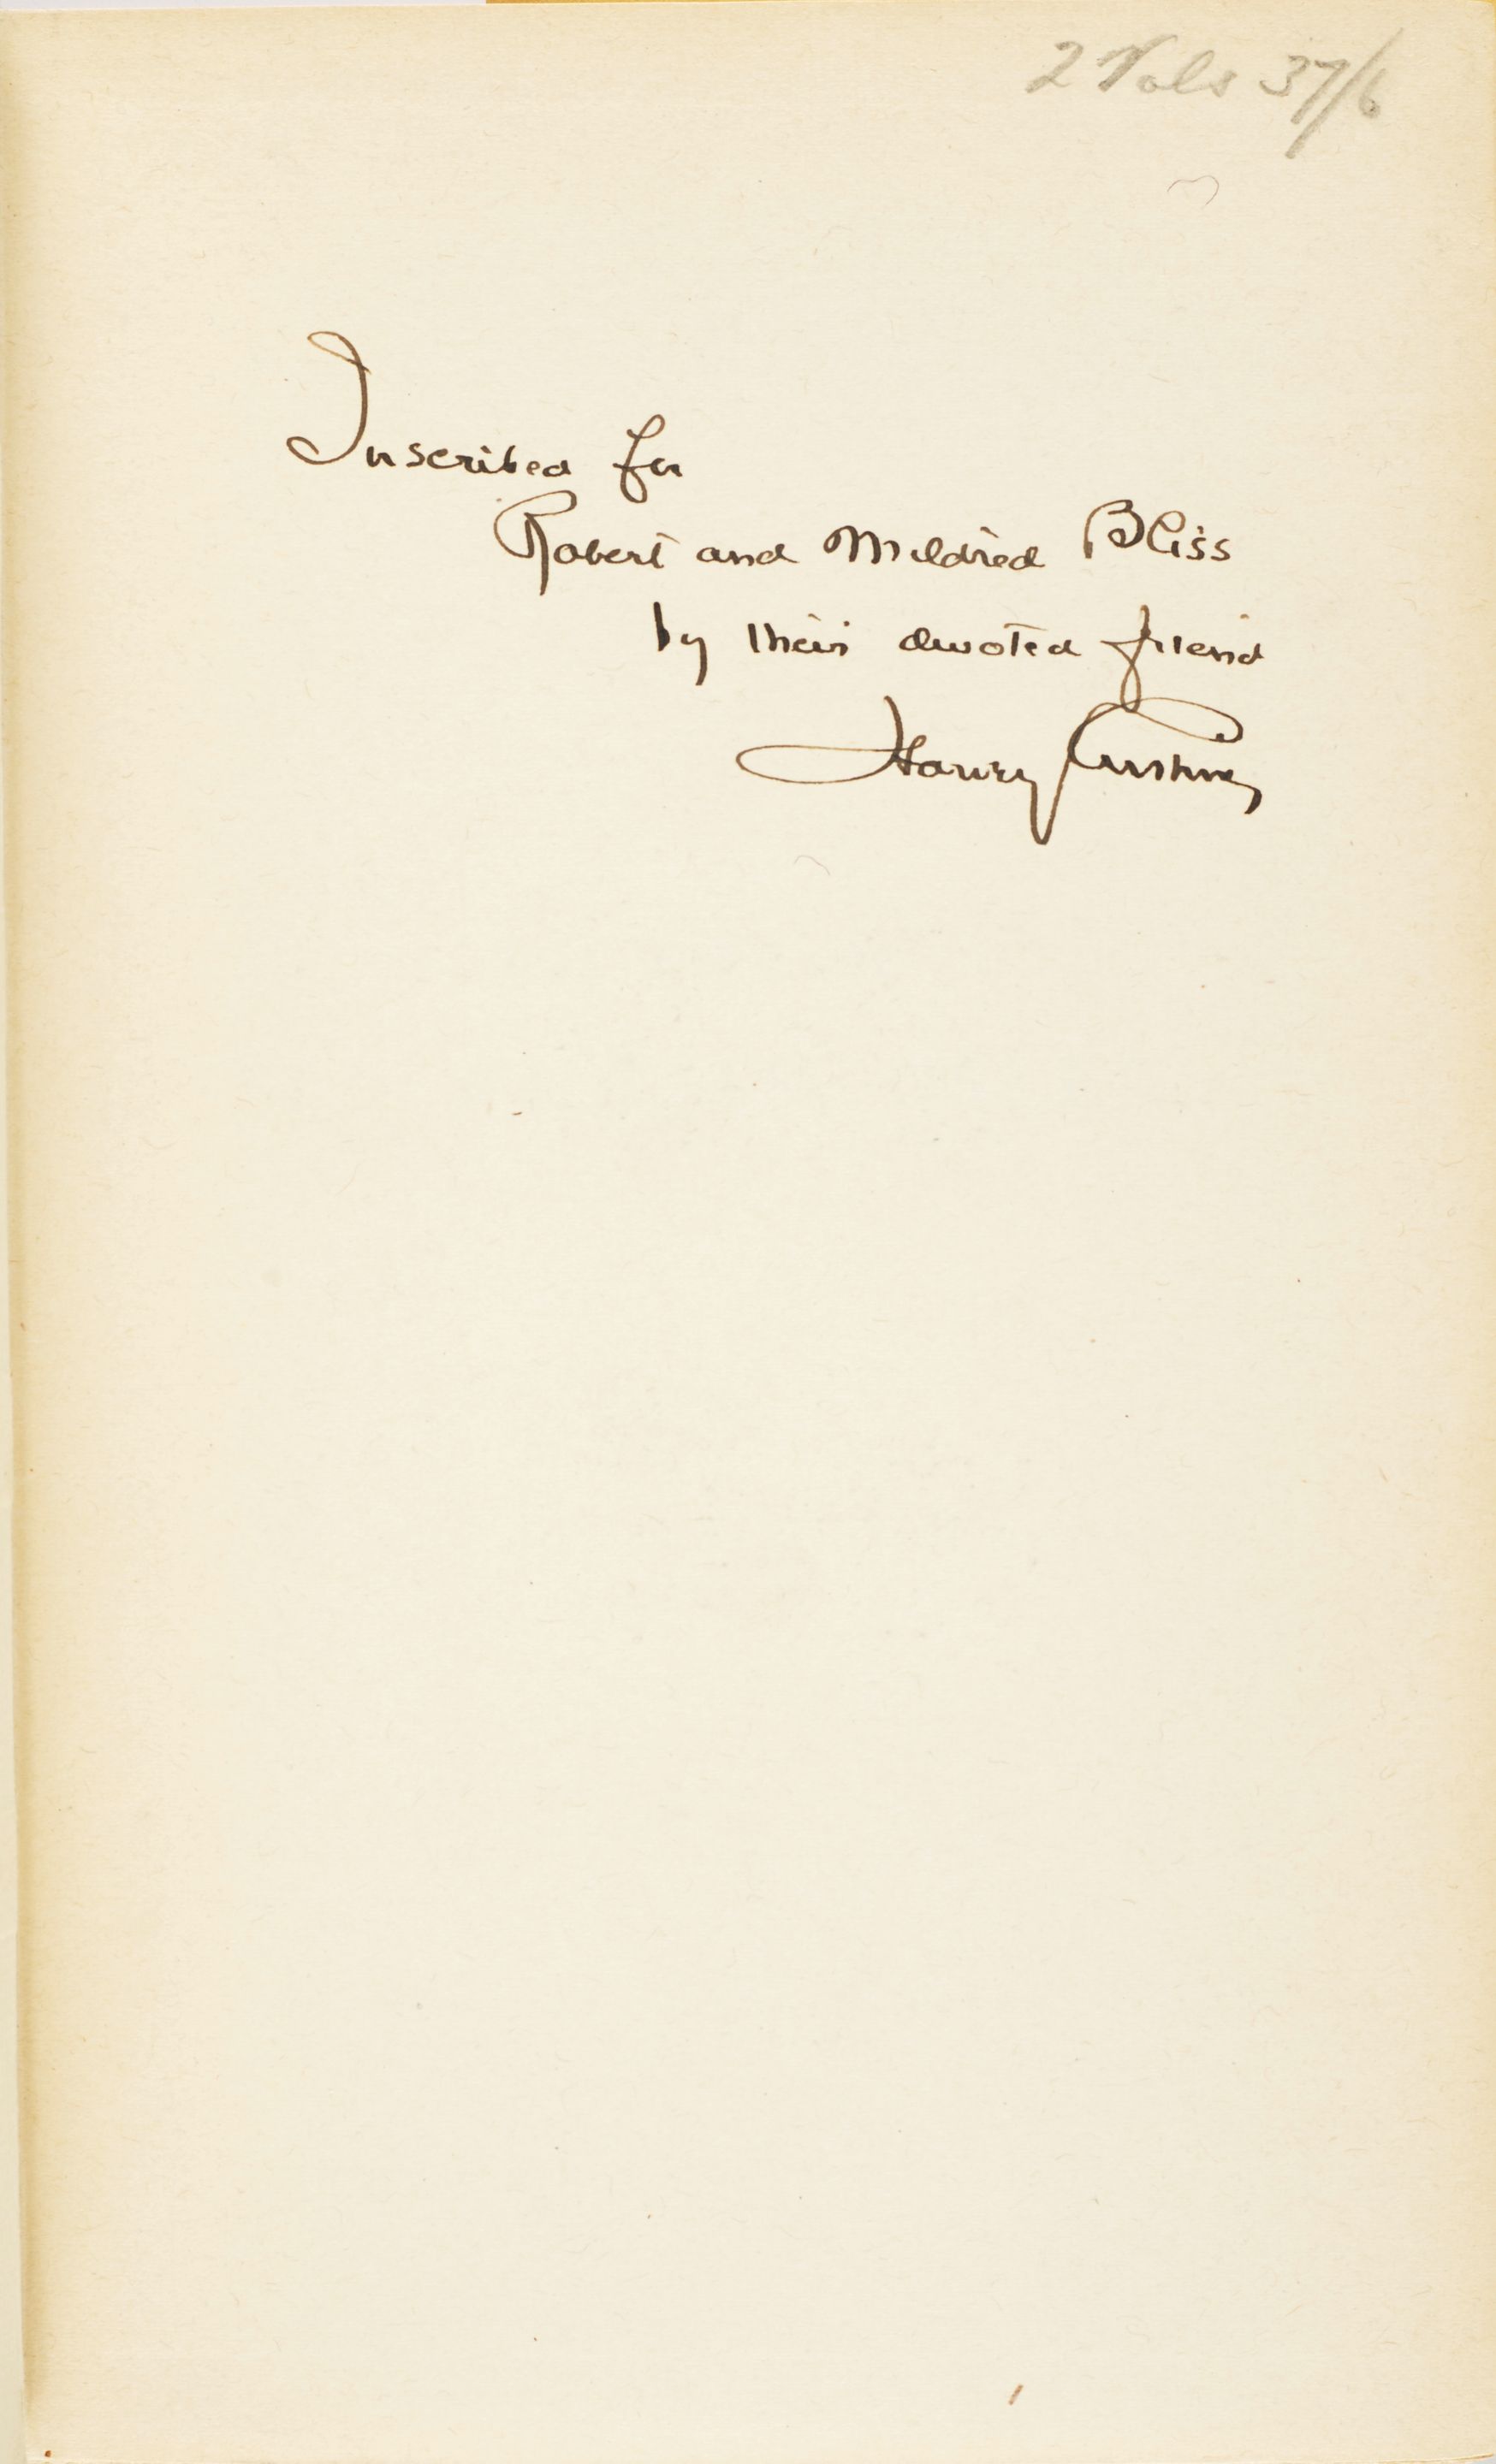 2 Vols 37/6
Inscribed for
Robert and Mildred Bliss
by their devoted friend
Harvey Cushing